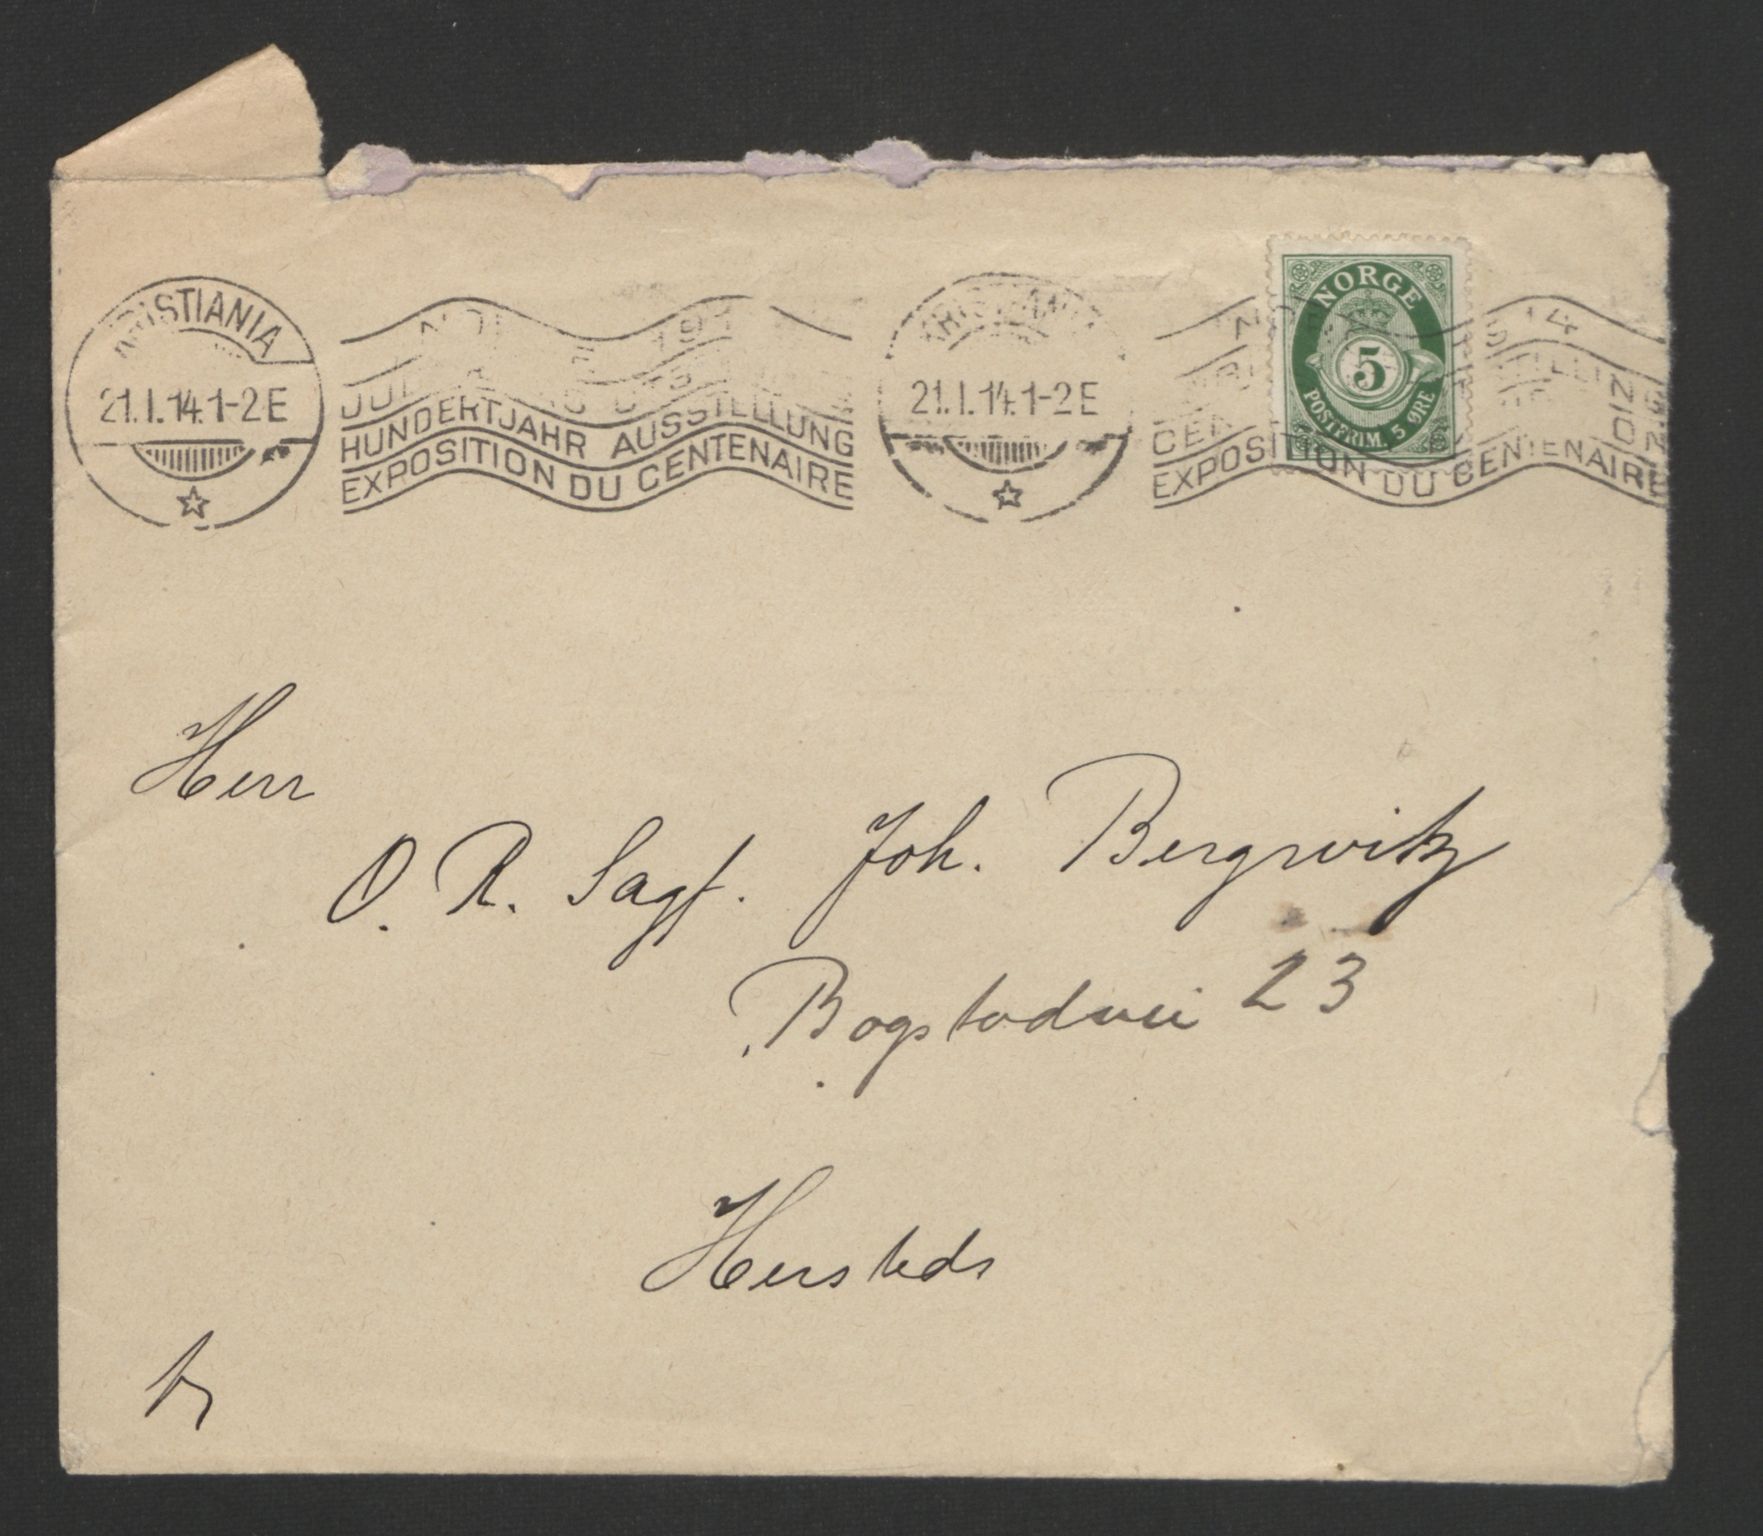 KRISTIANIA
21.I.14.1-2E
HUNDERTJAHR AUSSTELLUNG
EXPOSITION DU CENTENAIRE
KRISTIANIA
21.I.14.1-2E
EXPOSITION DU CENTENAIRE
NORGE
5
POSTFRIM. 5 ØRE
Herr
O. R. Sagf. Joh. Bergwitz
Bogstadvei 23
Hersteds